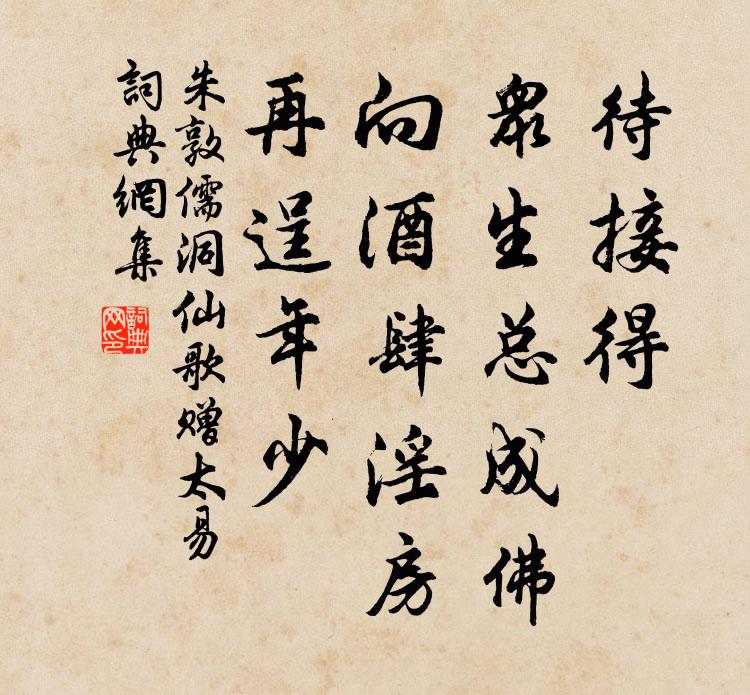 待接得
眾生总成佛
向酒肆淫房
再逞年少
朱敦儒洞仙歌赠太易
詞典網集
詞典
网印